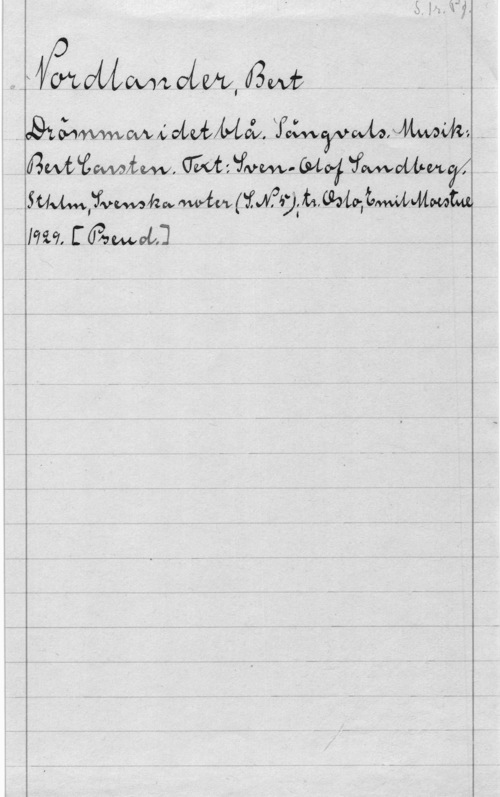 S. 1 r. Pf.
Nordlander, Bert
Drömmar i det blå. Sångvals. Musik:
Bert Carsten. Text: Sven-Olof Sandberg.
Sthlm, Svenska noter (S. N. 5); tr. Oslo, Emil Moestue
1929. [Pseud.]